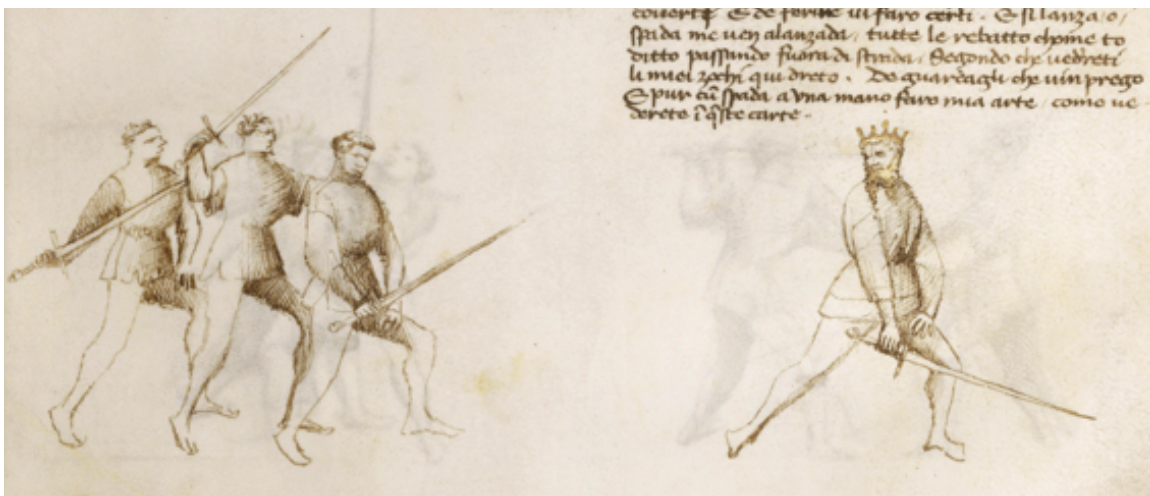 coverte E de ferire vi faro certi. E si lanza o
spada me ven alanzada, tutte le rebatto chome to
ditto passando fuora di strada. Segondo che vedreti
li miei zochi qui dreto. De guardagli che vin prego
E pur cū spada a una mano faro mia arte, como ve
dereto ī q̄ste carte.